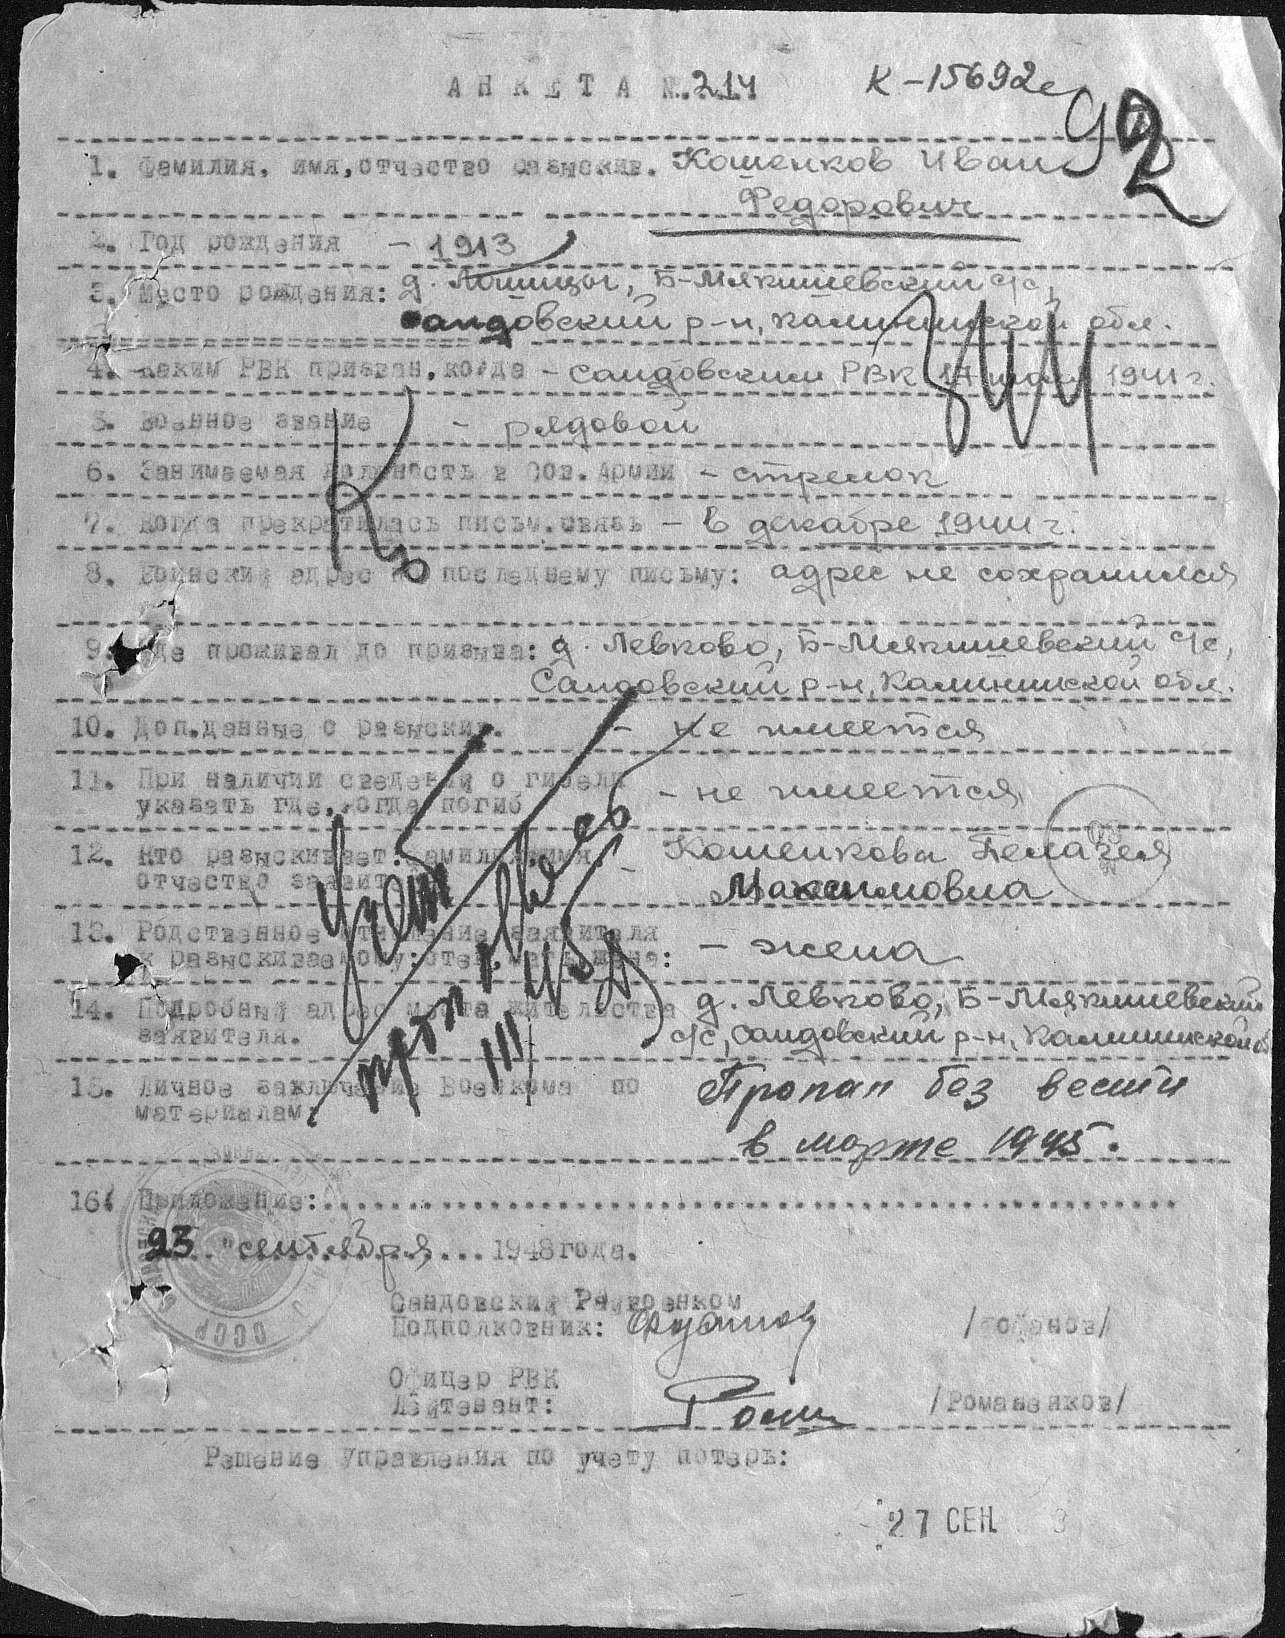 АНКЕТА №.214 К-15692с
92
1. Фамилия, имя, отчество разыскив. Кошенков Иван
Федорович
2. Год рождения - 1913
3. Место рождения: д. Б-Мякишевский с/с,
Сандовский р-н, Калининской обл.
4. Каким РВК призван, когда - Сандовским РВК 17 1941 г.
5. Военное звание - рядовой
6. Занимаемая должность в Сов. Армии - стрелок
7. Когда прекратилась письм. связь - в декабре 1944 г.
8. Воинский адрес по последнему письму: адрес не сохранился
9. Где проживал до призыва: д. Левково, Б-Мякишевский с/с,
Сандовский р-н, Калининской обл.
10. Доп.данные о разыскив. - не имеется
11. При наличии сведений о гибели
указать где, когда погиб - не имеется
12. Кто разыскивает: фамилия, имя
отчество заявит. - Кошенкова Пелагея
Максимовна
13. Родственное отношение заявителя
к разыскиваемому: отец, мать, жена: - жена
14. Подробный адрес места жительства
заявителя. д. Левково, Б-Мякишевский
с/с, Сандовский р-н, Калининской об
15. Личное заключение Военкома по
материалам: Пропал без вести
в марте 1945.
16. Приложение:
23 " сентября 1948 года.
СССР
Сандовский Райвоенком
Подполковник:
Офицер РВК
Лейтенант: /Романенков/
Решение Управления по учету потерь:
27 СЕН. 8